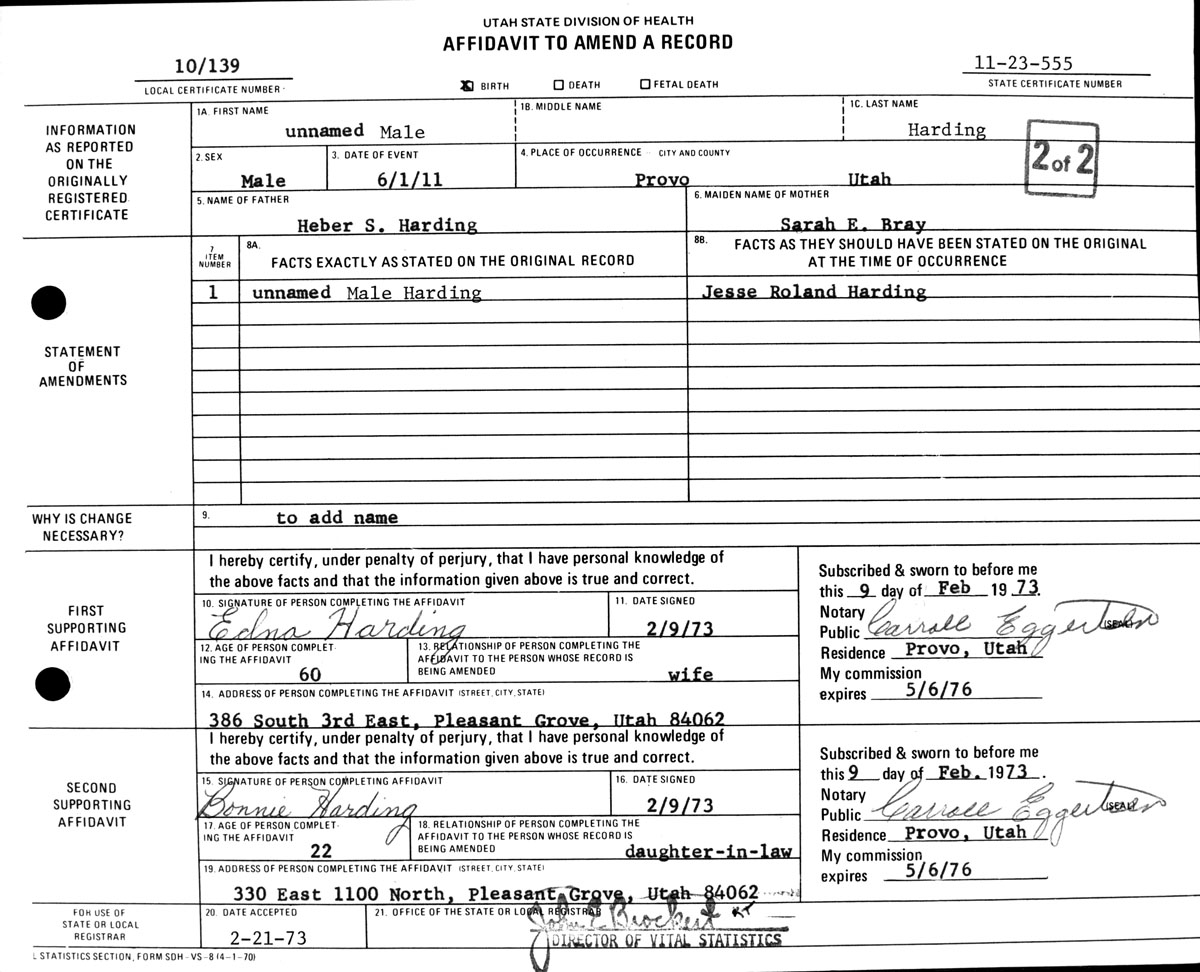 UTAH STATE DIVISION OF HEALTH
AFFIDAVIT TO AMEND A RECORD
10/139
LOCAL CERTIFICATE NUMBER
BIRTH DEATH FETAL DEATH
11-23-555
STATE CERTIFICATE NUMBER
INFORMATION
AS REPORTED
ON THE
ORIGINALLY
REGISTERED
CERTIFICATE
1A. FIRST NAME
unnamed Male
1B. MIDDLE NAME
1C. LAST NAME
Harding
2 of 2
2. SEX
Male
3. DATE OF EVENT
6/1/11
4. PLACE OF OCCURRENCE - CITY AND COUNTY
Provo Utah
5. NAME OF FATHER
Heber S. Harding
6. MAIDEN NAME OF MOTHER
Sarah E. Bray
STATEMENT
OF
AMENDMENTS
7
ITEM
NUMBER
8A.
FACTS EXACTLY AS STATED ON THE ORIGINAL RECORD
8B.
FACTS AS THEY SHOULD HAVE BEEN STATED ON THE ORIGINAL
AT THE TIME OF OCCURRENCE
1 unnamed Male Harding Jesse Roland Harding
WHY IS CHANGE
NECESSARY?
9. to add name
FIRST
SUPPORTING
AFFIDAVIT
I hereby certify, under penalty of perjury, that I have personal knowledge of
the above facts and that the information given above is true and correct.
10. SIGNATURE OF PERSON COMPLETING THE AFFIDAVIT
Edna Harding
11. DATE SIGNED
2/9/73
12. AGE OF PERSON COMPLET-
ING THE AFFIDAVIT
60
13. RELATIONSHIP OF PERSON COMPLETING THE
AFFIDAVIT TO THE PERSON WHOSE RECORD IS
BEING AMENDED
wife
14. ADDRESS OF PERSON COMPLETING THE AFFIDAVIT (STREET, CITY, STATE)
386 South 3rd East, Pleasant Grove, Utah 84062
Subscribed & sworn to before me
this 9 day of Feb 1973.
Notary
Public Carroll Eggertsen (SEAL)
Residence Provo, Utah
My commission
expires 5/6/76
SECOND
SUPPORTING
AFFIDAVIT
I hereby certify, under penalty of perjury, that I have personal knowledge of
the above facts and that the information given above is true and correct.
15. SIGNATURE OF PERSON COMPLETING AFFIDAVIT
Bonnie Harding
16. DATE SIGNED
2/9/73
17. AGE OF PERSON COMPLET-
ING THE AFFIDAVIT
22
18. RELATIONSHIP OF PERSON COMPLETING THE
AFFIDAVIT TO THE PERSON WHOSE RECORD IS
BEING AMENDED
daughter-in-law
19. ADDRESS OF PERSON COMPLETING THE AFFIDAVIT (STREET, CITY, STATE)
330 East 1100 North, Pleasant Grove, Utah 84062
Subscribed & sworn to before me
this 9 day of Feb. 1973.
Notary
Public Carroll Eggertsen (SEAL)
Residence Provo, Utah
My commission
expires 5/6/76
FOR USE OF
STATE OR LOCAL
REGISTRAR
20. DATE ACCEPTED
2-21-73
21. OFFICE OF THE STATE OR LOCAL REGISTRAR
John E Brockert
DIRECTOR OF VITAL STATISTICS
L STATISTICS SECTION, FORM SDH-VS-8 (4-1-70)